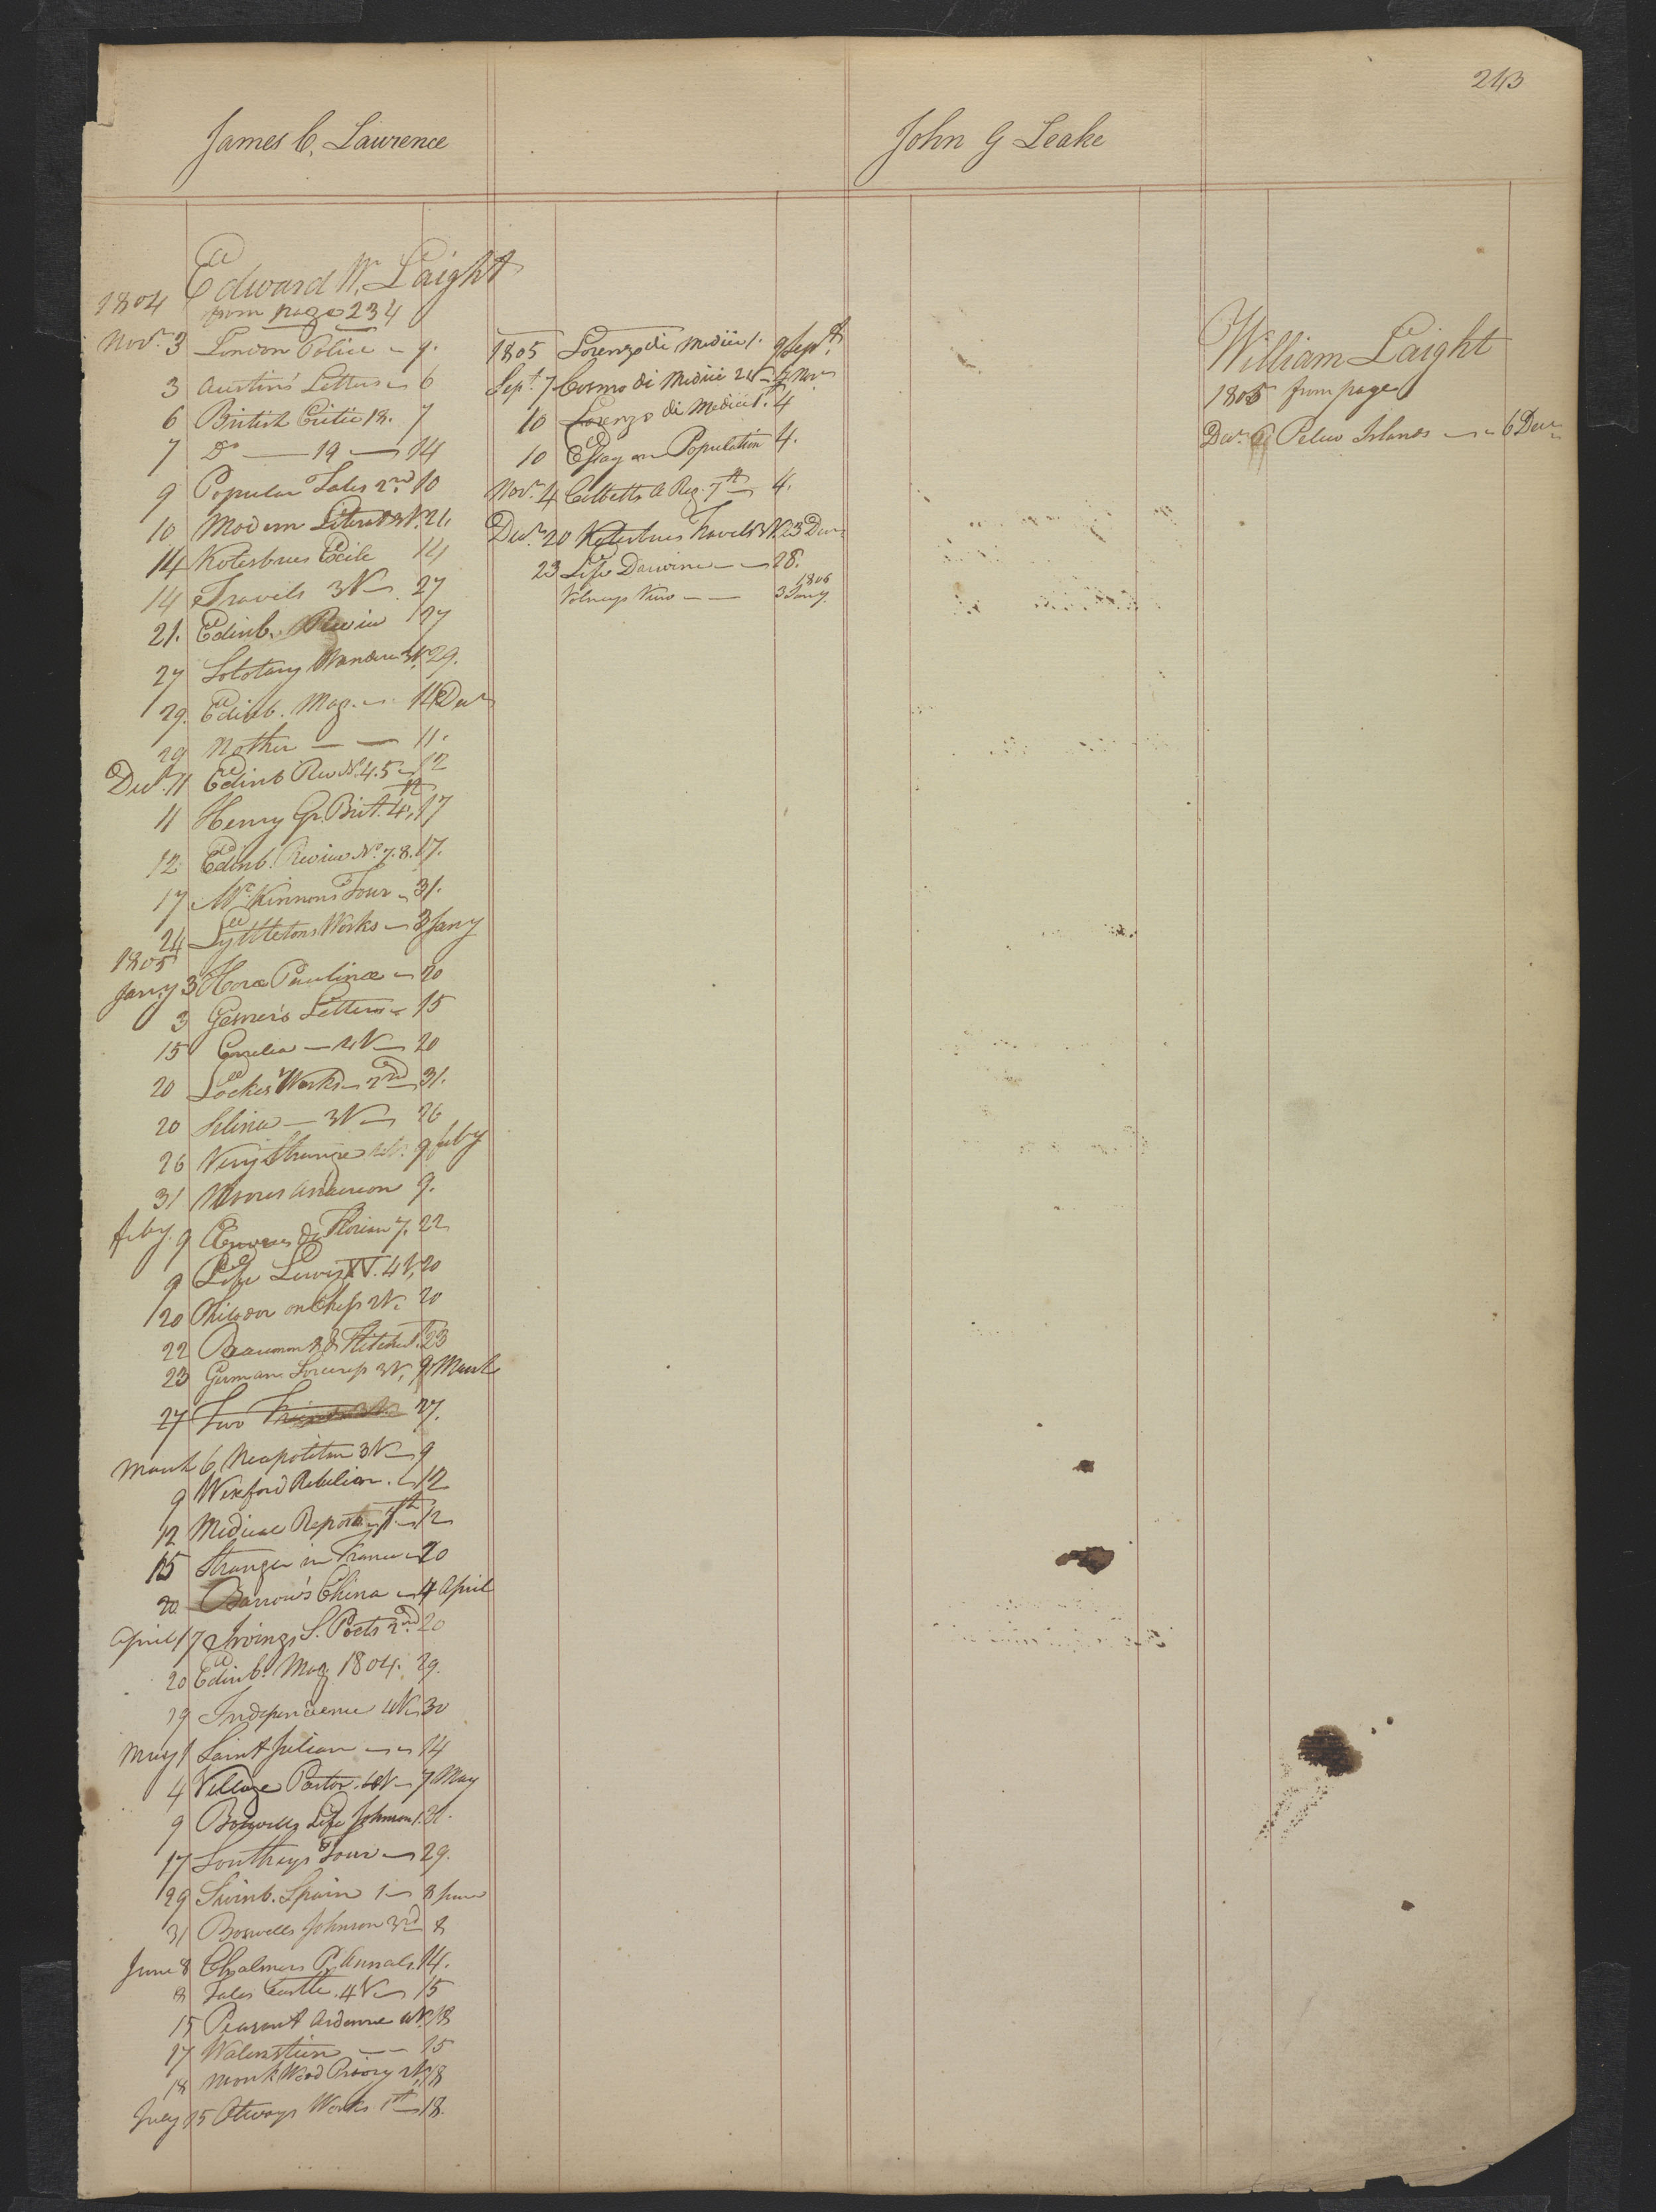 243
James C. Lawrence
John G Leake
Edward W. Laight
1804 from page 234
Novr. 3 London Police 7.
3 Austin's Letters 6
6 British Critic 18. 7
7 Do — 19 — 14
9 Popular Tales 2nd 10
10 Modern Literat 3V. 21.
14 Kotesbues Exile 14
14 Travels 3V 27
21. Edinb. Review 27
27 Solotary Wanderer 3V. 29.
29. Edinb. Mag. 11 Decr
29 Mother — — 11.
Decr. 11 Edinb Rev No. 4.5 12
11 Henry Gr. Brit. 4th 17
12 Edinb. Review No. 7.8. 17.
17 McKinnons Tour 31.
24 Lyttletons Works 3 Jany
1805
Jany 3 Horæ Paulinæ 20
3 Gesner's Letters 15
15 Emelia — 4V 20
20 Lockes Works 2nd 31.
20 Selina — 3V 26
26 Very Strange 9 feby
31 Moores Anacreon 9.
feby. 9 Œuvres de Florian 7. 22
9 Life Lewis XV. 4V. 20
20 Philidor on Chess 2V. 20
22 Beaumont & Fletcher 1. 23
23 German Sorceress 3V. 9 March
27 Two Friends 27.
March 6 Neapolitan 3V 9
9 Wexford Rebelion. 12
12 Medical Repos. 12
15 Stranger in France 20
20 Barrow's China 4 April
April 17 Irvings S. Poets 2nd 20
20 Edinb. Mag. 1804. 29.
29 Independence 4V 30
May 1 Saint Julian 14
4 Village Pastor. 7 May
9 Boswells Life Johnson 1. 31.
17 Southeys Tour 29.
29 Swinb. Spain 1 8 June
31 Boswells Johnson 3rd 8
June 8 Chalmers P. Annals. 14.
8 Tales Castle. 4V 15
15 Peasant Ardenne 4V. 18
17 Walenstein — — 15
18 Monk Wood Priory 2V. 18
July 15 Otways Works 1st 18.
1805 Lorenzo di Medici 1. 9 Sept.
Sept. 7 Cosmo di Medici 2V 4 Nov
10 Lorenzo di Medici 1st. 4
10 Essay on Population 4.
Novr. 4 Cobbetts A Reg. 7th 4.
Decr. 20 Kotesbues Travels 3V. 23 Decr
23 Life Darwin — — 28.
1806
Volneys View — — 3 Jany.
William Laight
1805 from page
Decr. 6 Pelew Islands — 6 Decr